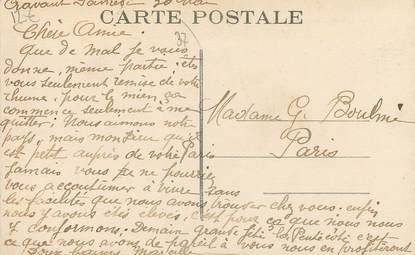 CARTE POSTALE
12€
37
Chère Amie.
Que de mal je vous
donne, même partie; êtes
vous seulement remise de votre
rhume; pour le mien ça
commence seulement à me
quitter; Nous aimons notre
pays, mais mon Dieu qu'il
est petit auprès de votre Paris
Jamais vous ne pourriez
vous accoutumer à vivre sans
les facilités que nous avons trouver chez vous. enfin
nous y avons étés élevés. c'est pour ça que nous nous
y conformons; Demain grande fête la Pentecôte c'est
ce que nous avons de pareil à vous nous en profiterons
Madame G. Boulmé
Paris